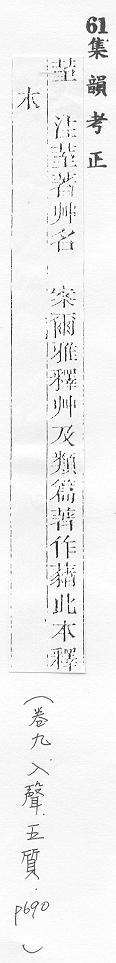 61集韻考正
荎 注荎著艸名 案爾雅釋艸及類篇著作藸此本釋
木
(卷九.入聲.五質.p690)